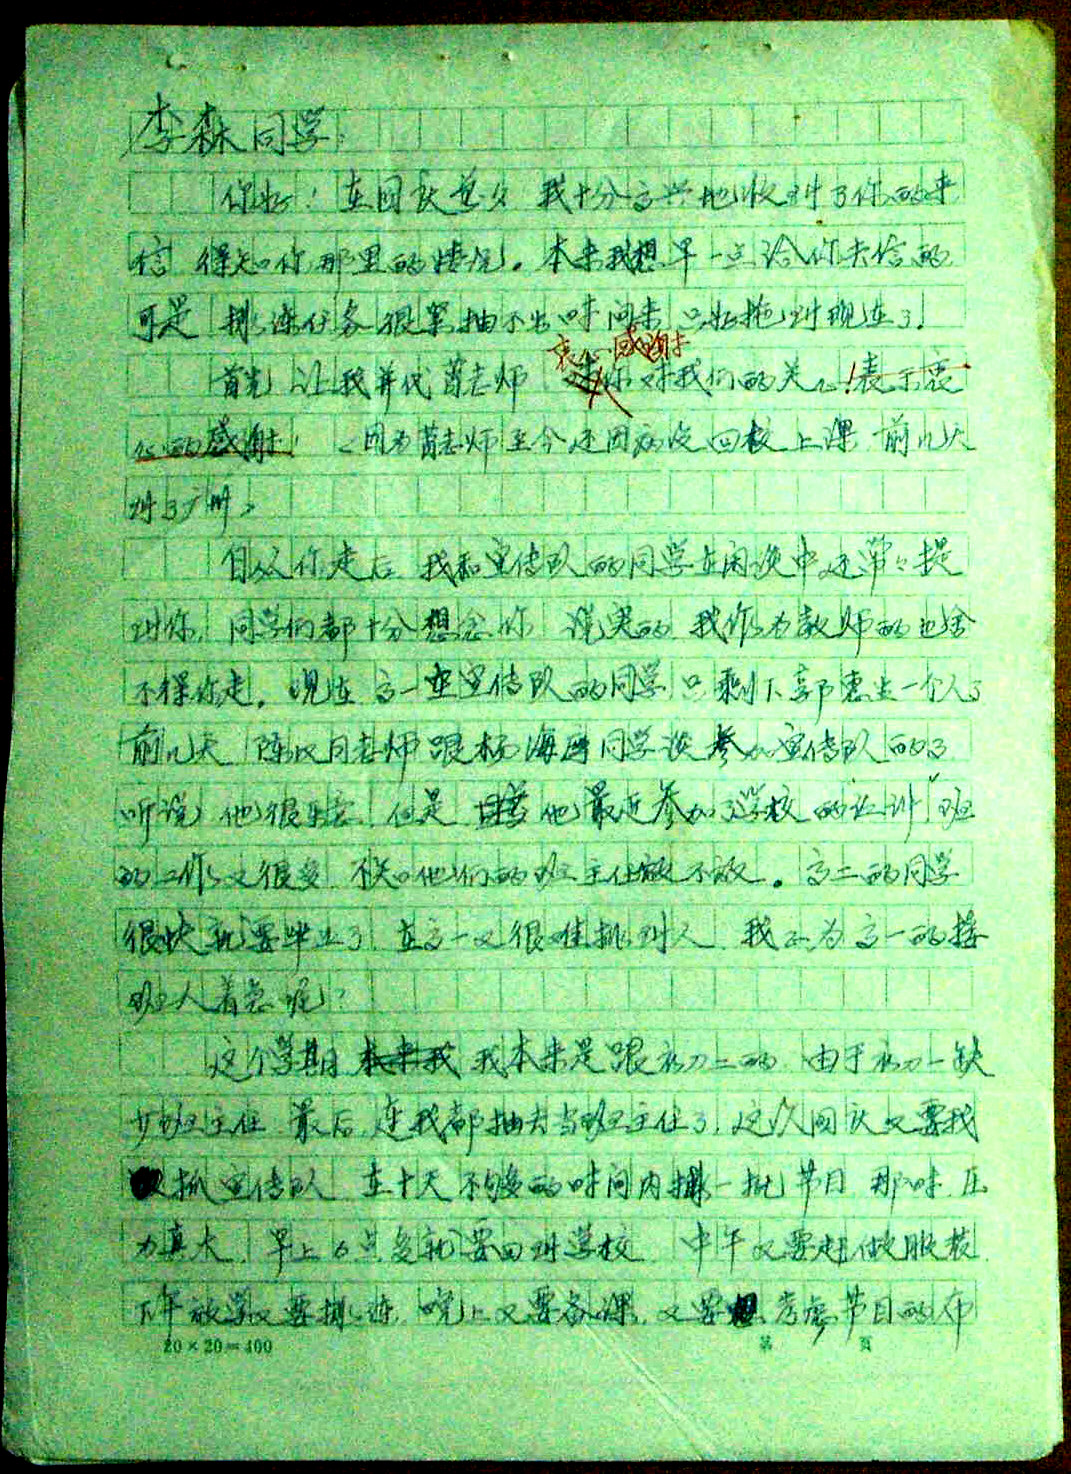 李森同学:
你好!在国庆前夕 我十分高兴地收到了你的来
信 得知你那里的情况。本来我想早一点给你去信的
可是 排练任务很紧 抽不出时间来 只好拖到现在了!
衷心感谢
首先 让我并代 老师 你对我们的关心!表示衷
心的感谢! (因为 老师至今还因病没回校上课 前几天
到了广州)
自从你走后 我和宣传队的同学在闲谈中还常々提
到你 同学们都十分想念你 说实的 我作为教师的也舍
不得你走。现在高一在宣传队的同学只剩下郭惠 一个人了
前几天 陈 老师跟杨海 同学谈参加宣传队的事
听说 他很乐意 但是 他最近参加了学校的 训"班
的工作又很多 不知他们的班主任放不放。高二的同学
很快就要毕业了 在高一又很难挑到人 我正为高一的接
班人着急呢?
这个学期 本来我 我本来是跟初二的 由于初一缺
少班主任 最后 连我都抽去当班主任了!这次国庆又要我
抓宣传队 在十天不够的时间内排一批节目 那时 压
力真大 早上6点多就要回到学校 中午又要赶做服装
下午放学又要排练 晚上又要备课 又要想 考虑节目的布
20×20=400 第 页